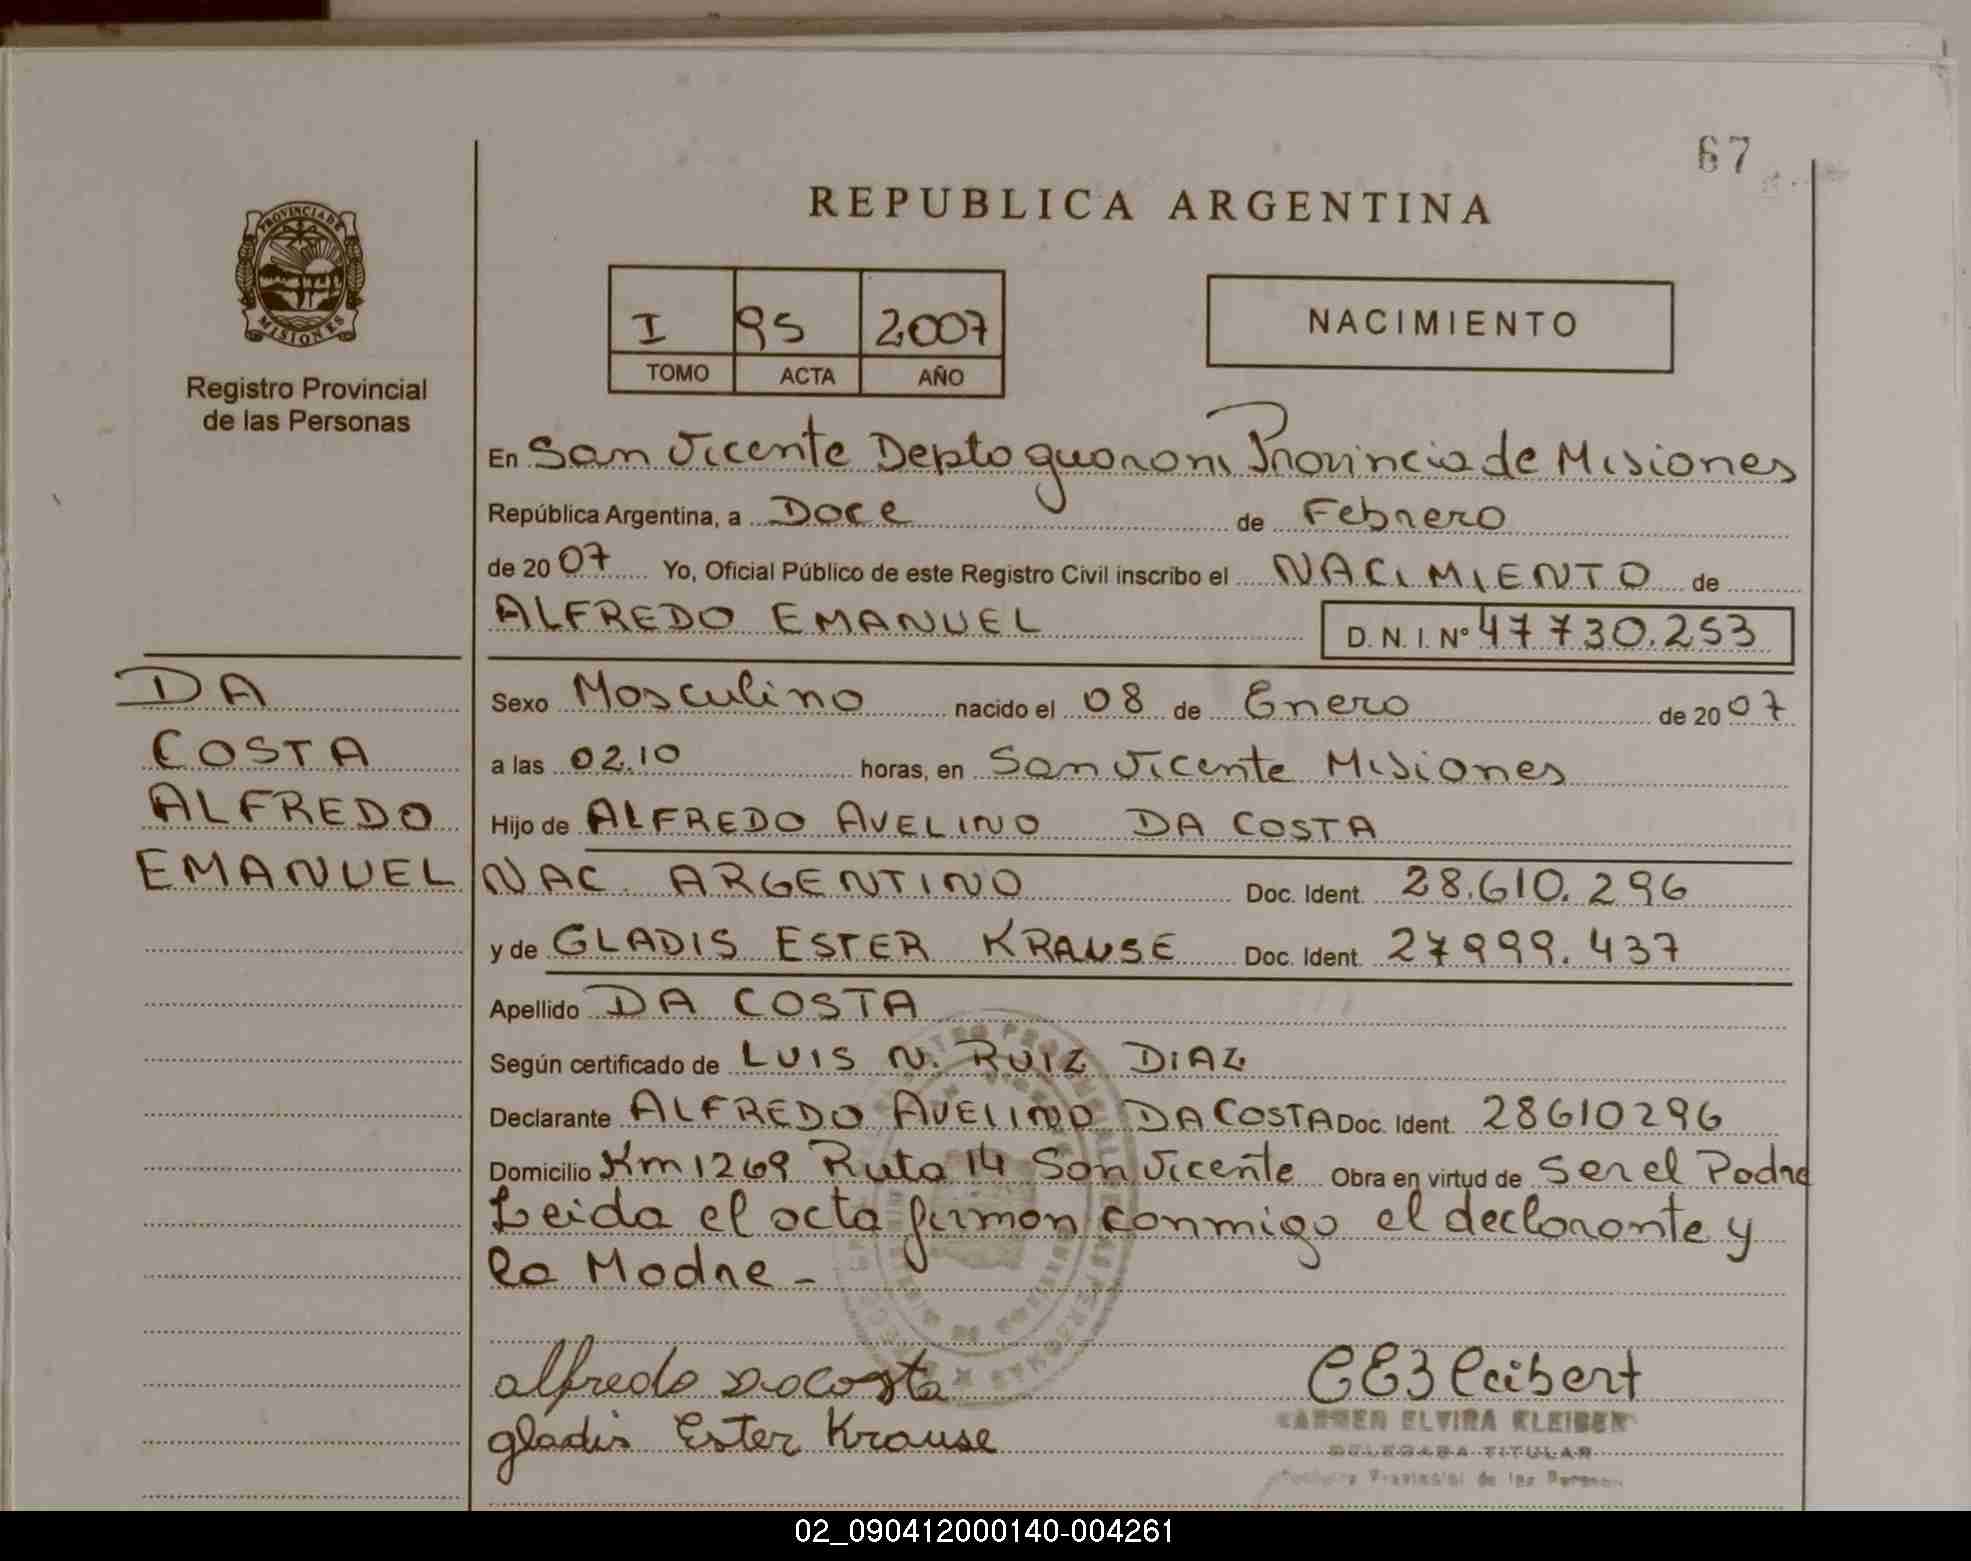 67
REPUBLICA ARGENTINA
PROVINCIA DE
MISIONES
Registro Provincial
de las Personas
I 95 2007
TOMO ACTA AÑO
NACIMIENTO
En San Vicente Depto guarani Provincia de Misiones
República Argentina, a Doce de Febrero
de 2007 Yo, Oficial Público de este Registro Civil inscribo el NACIMIENTO de
ALFREDO EMANUEL D. N. I. Nº 47730.253
DA
COSTA
ALFREDO
EMANUEL
Sexo Masculino nacido el 08 de Enero de 2007
a las 02.10 horas, en San Vicente Misiones
Hijo de ALFREDO AVELINO DA COSTA
NAC. ARGENTINO Doc. Ident. 28.610.296
y de GLADIS ESTER KRAUSE Doc. Ident. 27999.437
Apellido DA COSTA
Según certificado de LUIS N. RUIZ DIAZ
Declarante ALFREDO AVELINO DA COSTA Doc. Ident. 28610296
Domicilio Km 1269 Ruta 14 San Vicente Obra en virtud de Ser el Padre
Leida el acta firman conmigo el declarante y
la Madre -
alfredo dacosta
gladis Ester Krause
CARMEN ELVIRA KLEIBER
DELEGADA TITULAR
Provincial de las Personas
02_090412000140-004261